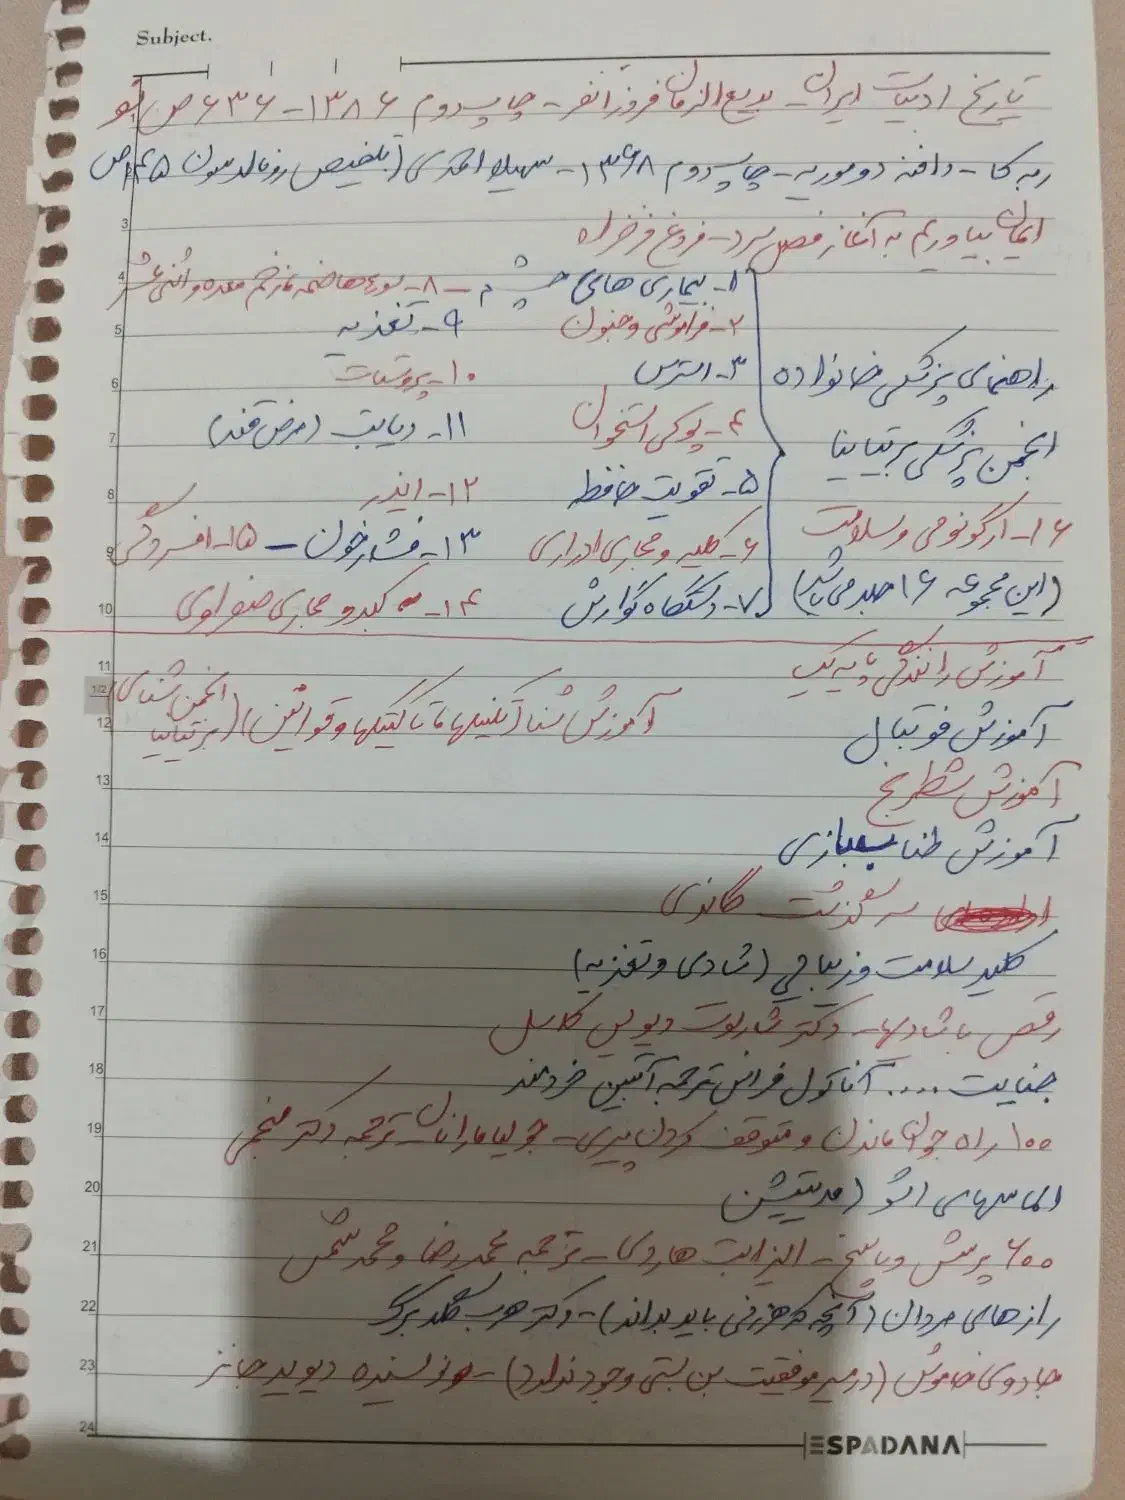 Subject.
تاریخ ادبیات ایران - بدیع الزمان فروزانفر - چاپ دوم ۱۳۸۶ - ۶۳۶ ص
ربه کا - دافنه دوموریه - چاپ دوم ۱۳۶۸ - سهیلا احمدی (تلخیص رونالد سون ۱۴۵ ص
ایمان بیاوریم به آغاز فصل سرد - فروغ فرخزاد
۱- بیماری های چشم - ۸- سوء هاضمه زخم معده و اثنی عشر
۲- فراموشی و جنون ۹- تغذیه
راهنمای پزشکی خانواده ۳- استرس ۱۰- پروستات
انجمن پزشکی بریتانیا ۴- پوکی استخوان ۱۱- دیابت (مرض قند)
۵- تقویت حافظه ۱۲- ایدز
۱۶- ارگونومی و سلامت ۶- کلیه و مجاری ادراری ۱۳- فشار خون - ۱۵- افسردگی
(این مجموعه ۱۶ جلد می باشد) ۷- دستگاه گوارش ۱۴- کبد و مجاری صفراوی
آموزش رانندگی پایه یک
آموزش فوتبال آموزش شنا تکنیکها تاکتیکها و قوانین) (انجمن شنای بریتانیا
آموزش شطرنج
آموزش طناب بازی
سرگذشت گاندی
کلید سلامت و زیبایی (شادی و تغذیه)
رقص با شادیها - دکتر شارلوت دیویس کاسل
جنایت .... آناتول فرانس ترجمه آبتین خردمند
۱۰۰ راه جوان ماندن و متوقف کردن پیری - جولیا مارانان - ترجمه دکتر منجمی
الماسهای اشو (مدیتیشن
۶۰۰ پرسش و پاسخ - الیزابت هاردی - ترجمه محمدرضا و محمد شمس
رازهای مردان (آنچه که هر زنی باید بداند) - دکتر هرب گلدبرگ
جادوی خاموش (در مسیر موفقیت بن بستی وجود ندارد) - نویسنده دیوید جانز
3
4
5
6
7
8
9
10
11
12
12
13
14
15
16
17
18
19
20
21
22
23
24
ESPADANA